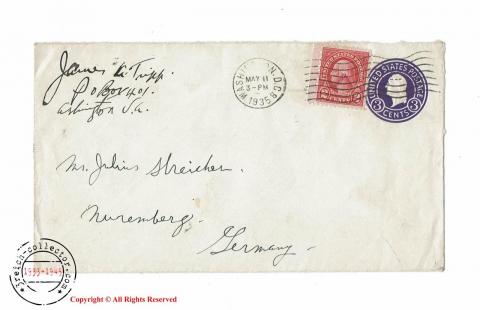 James A. Tripp.
P O Box 401.
Arlington Va.
WASHINGTON, D.C. 8
MAY 11
3-PM
1935
2 CENTS 2
UNITED STATES POSTAGE
3 CENTS 3
Mr. Julius Streicher
Nuremberg.
Germany.
3reich-collector.com
1933-1945
Copyright © All Rights Reserved